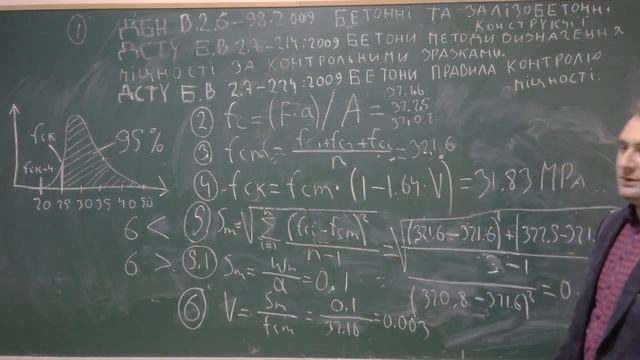 ① ДБН В.2.6-98:2009 БЕТОННІ ТА ЗАЛІЗОБЕТОННІ
КОНСТРУКЦІЇ
ДСТУ Б.В 2.7-214:2009 БЕТОНИ МЕТОДИ ВИЗНАЧЕННЯ
МІЦНОСТІ ЗА КОНТРОЛЬНИМИ ЗРАЗКАМИ.
ДСТУ Б.В 2.7-224:2009 БЕТОНИ ПРАВИЛА КОНТРОЛЮ
МІЦНОСТІ.
fck
fck-4
95%
20 25 30 35 40 50
② fc=(F·a)/A= 32.16
32.25
③ fcm= (fc1+fc2+fci)/n = 321.6
④ fck=fcm·(1-1.64·V)=31.83 MPa
6 < ⑤ Sm=√(∑ i=1 n (fci-fcm)²/(n-1)) =√((321.6-321.6)²+(322.5-321.
3-1
(370.8-321.6)² =0.
6 > 5.1 Sm= Wm/α =0.1
⑥ V= Sm/fcm = 0.1/32.16 =0.003